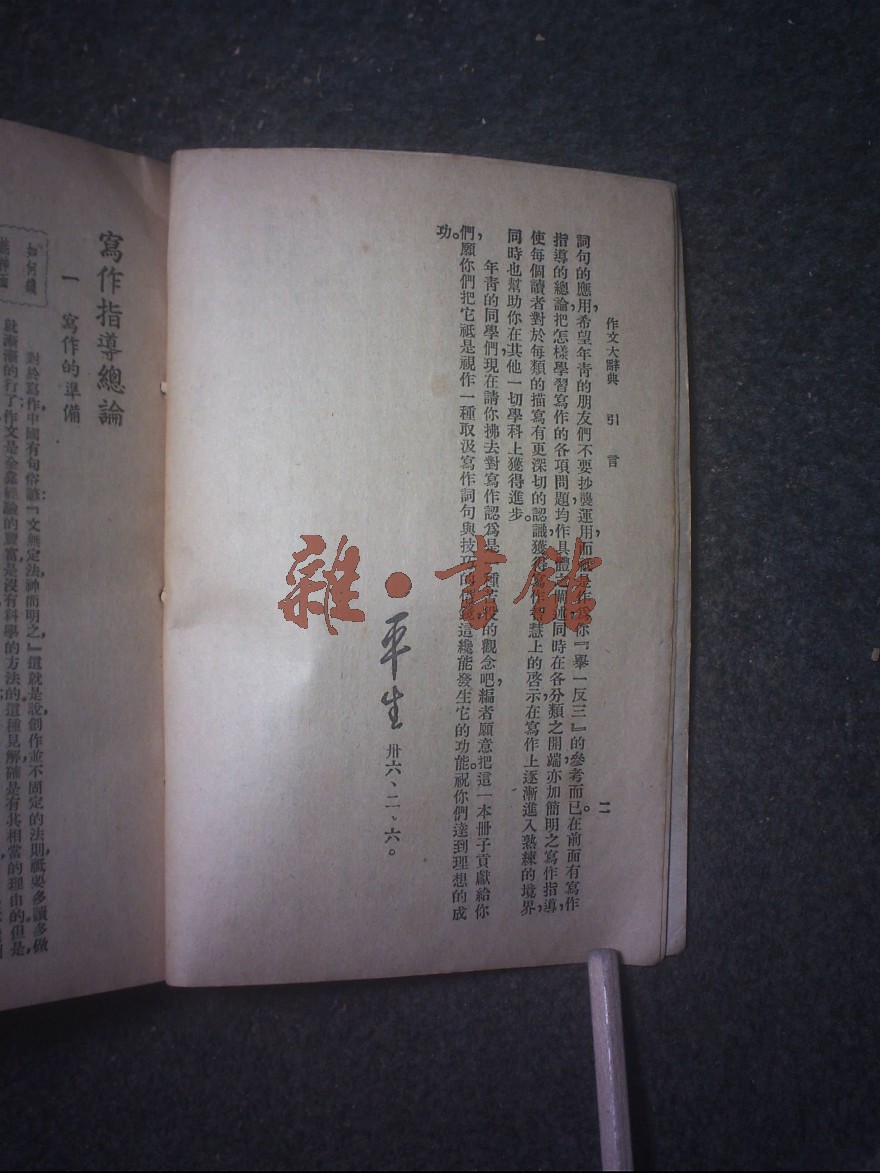 作文大辭典 引言
二
詞句的應用,希望年青的朋友們不要抄襲運用,而祗是作為你『舉一反三』的參考而已。在前面有寫作
指導的總論,把怎樣學習寫作的各項問題,均作具體之闡述,同時在各分類之開端,亦加簡明之寫作指導,
使每個讀者對於每類的描寫有更深切的認識,獲得寫作智慧上的啓示,在寫作上逐漸進入熟練的境界,
同時也幫助你在其他一切學科上獲得進步。
年青的同學們,現在請你拂去對寫作認爲是 種 的觀念吧,編者願意把這一本冊子貢獻給你
們,願你們把它祗是視作一種取汲寫作詞句與技巧的 這纔能發生它的功能。祝你們達到理想的成
功。
平生 卅六、二、六。
雜·書館
寫作指導總論
一 寫作的準備
如何纔
對於寫作,中國有句俗諺:『文無定法,神而明之。』這就是說創作並不固定的法則,祗要多讀多做,
就漸漸的行了,作文是全靠經驗的豐富,是沒有科學的方法的。這種見解確是有其相當的理由的,但是